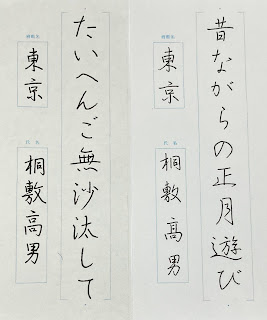 昔ながらの正月遊び
東京
氏名
桐敷高男
たいへんご無沙汰して
東京
氏名
桐敷高男